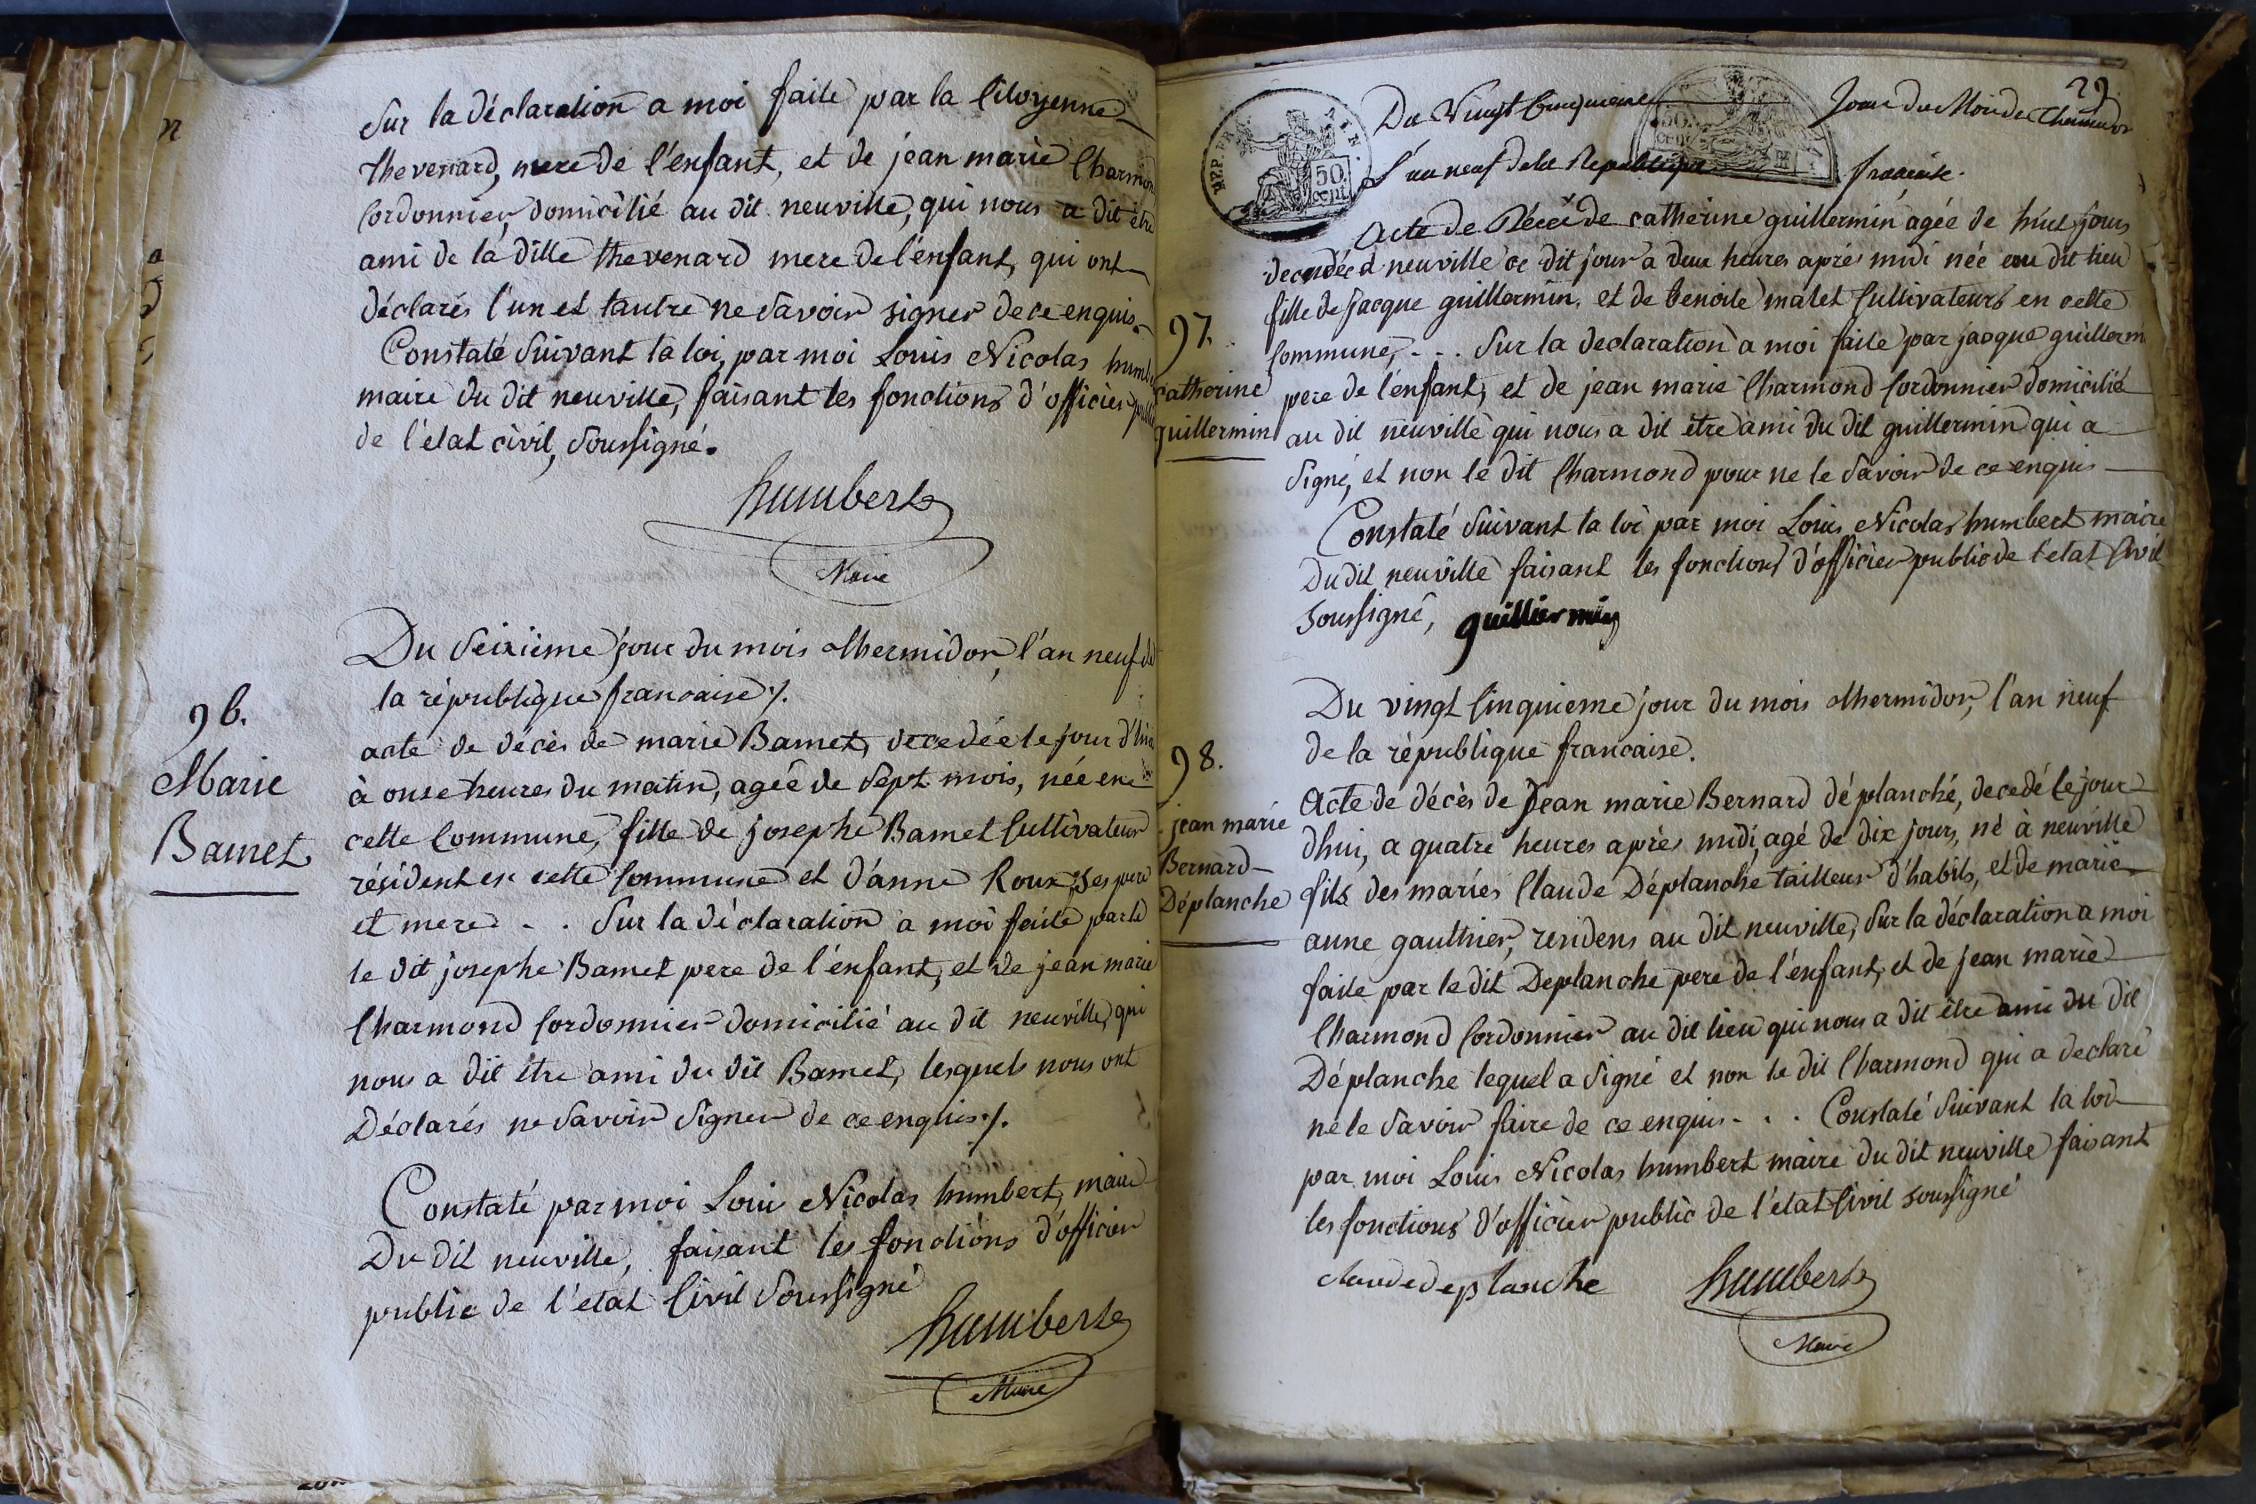 n
a
d
Sur la déclaration a moi faite par la Citoyenne
thevenard, mere de l'enfant, et de jean marie Charmon
Cordonnier, domicilié au dit neuville, qui nous a dit être
ami de la ditte thevenard mere de l'enfant, qui ont
déclarés l'un et l'autre ne savoir signer de ce enquis.
Constaté suivant la loi, par moi Louis Nicolas humb
maire du dit neuville, faisant les fonctions d'officier
de l'état civil, soussigné.
humbert
Maire
96.
Marie
Bamet
Du seixième jour du mois thermidor, l'an neuf de
la république francaise ./.
acte de décès de marie Bamet, decedée le jour d'hui
à onse heures du matin, agée de sept mois, née en
cette Commune, fille de josephe Bamet Cultivateur
résident en cette Commune et d'anne Roux ses pere
et mere . . Sur la déclaration a moi faite par le
le dit josephe Bamet pere de l'enfant, et de jean marie
Charmond Cordonnier domicilié au dit neuville, qui
nous a dit être ami du dit Bamet, lesquels nous ont
Déclarés ne savoir signer de ce enquis ./.
Constaté par moi Louis Nicolas humbert, maire
Du dit neuville, faisant les fonctions d'officier
public de l'etat Civil soussigné
humbert
Maire
29
REP. FRA.
50.
cent.
50.
cent.
Du Vingt Cinquieme Jour du Mois de Thermidor
L'an neuf de la Republique francaise.
97.
catherine
guillermin
Acte de Décè de catherine guillermin agée de huit jours
decedée à neuville ce dit jour a deux heures après midi née au dit lieu
fille de jacque guillermin, et de benoite malet Cultivateurs en cette
Commune, . . . Sur la declaration a moi faite par jacque guillerm
pere de l'enfant, et de jean marie Charmond Cordonnier domicilié
au dit neuville qui nous a dit être ami du dit guillermin qui a
signé, et non le dit Charmond pour ne le savoir de ce enquis
Constaté suivant la loi par moi Louis Nicolas humbert maire
Du dit neuville faisant les fonctions d'officier public de l'etat Civil
soussigné, guilliermin
98.
jean marie
Bernard
Déplanche
Du vingt Cinquieme jour du mois thermidor, l'an neuf
de la république francaise.
Acte de décès de Jean marie Bernard déplanché, decedé le jour
dhui, a quatre heures après midi, agé de dix jours, né à neuville
fils des mariés Claude Déplanche tailleur d'habits, et de marie
anne gauthier, residens au dit neuville, Sur la déclaration a moi
faite par le dit Deplanche pere de l'enfant, et de jean marie
Charmond Cordonnier au dit lieu qui nous a dit être ami du dit
Déplanche lequel a signé et non le dit Charmond qui a declaré
ne le savoir faire de ce enquis . . . Constaté suivant la loi
par moi Louis Nicolas humbert maire du dit neuville faisant
les fonctions d'officier public de l'état Civil soussigné
claude deplanche humbert
Maire